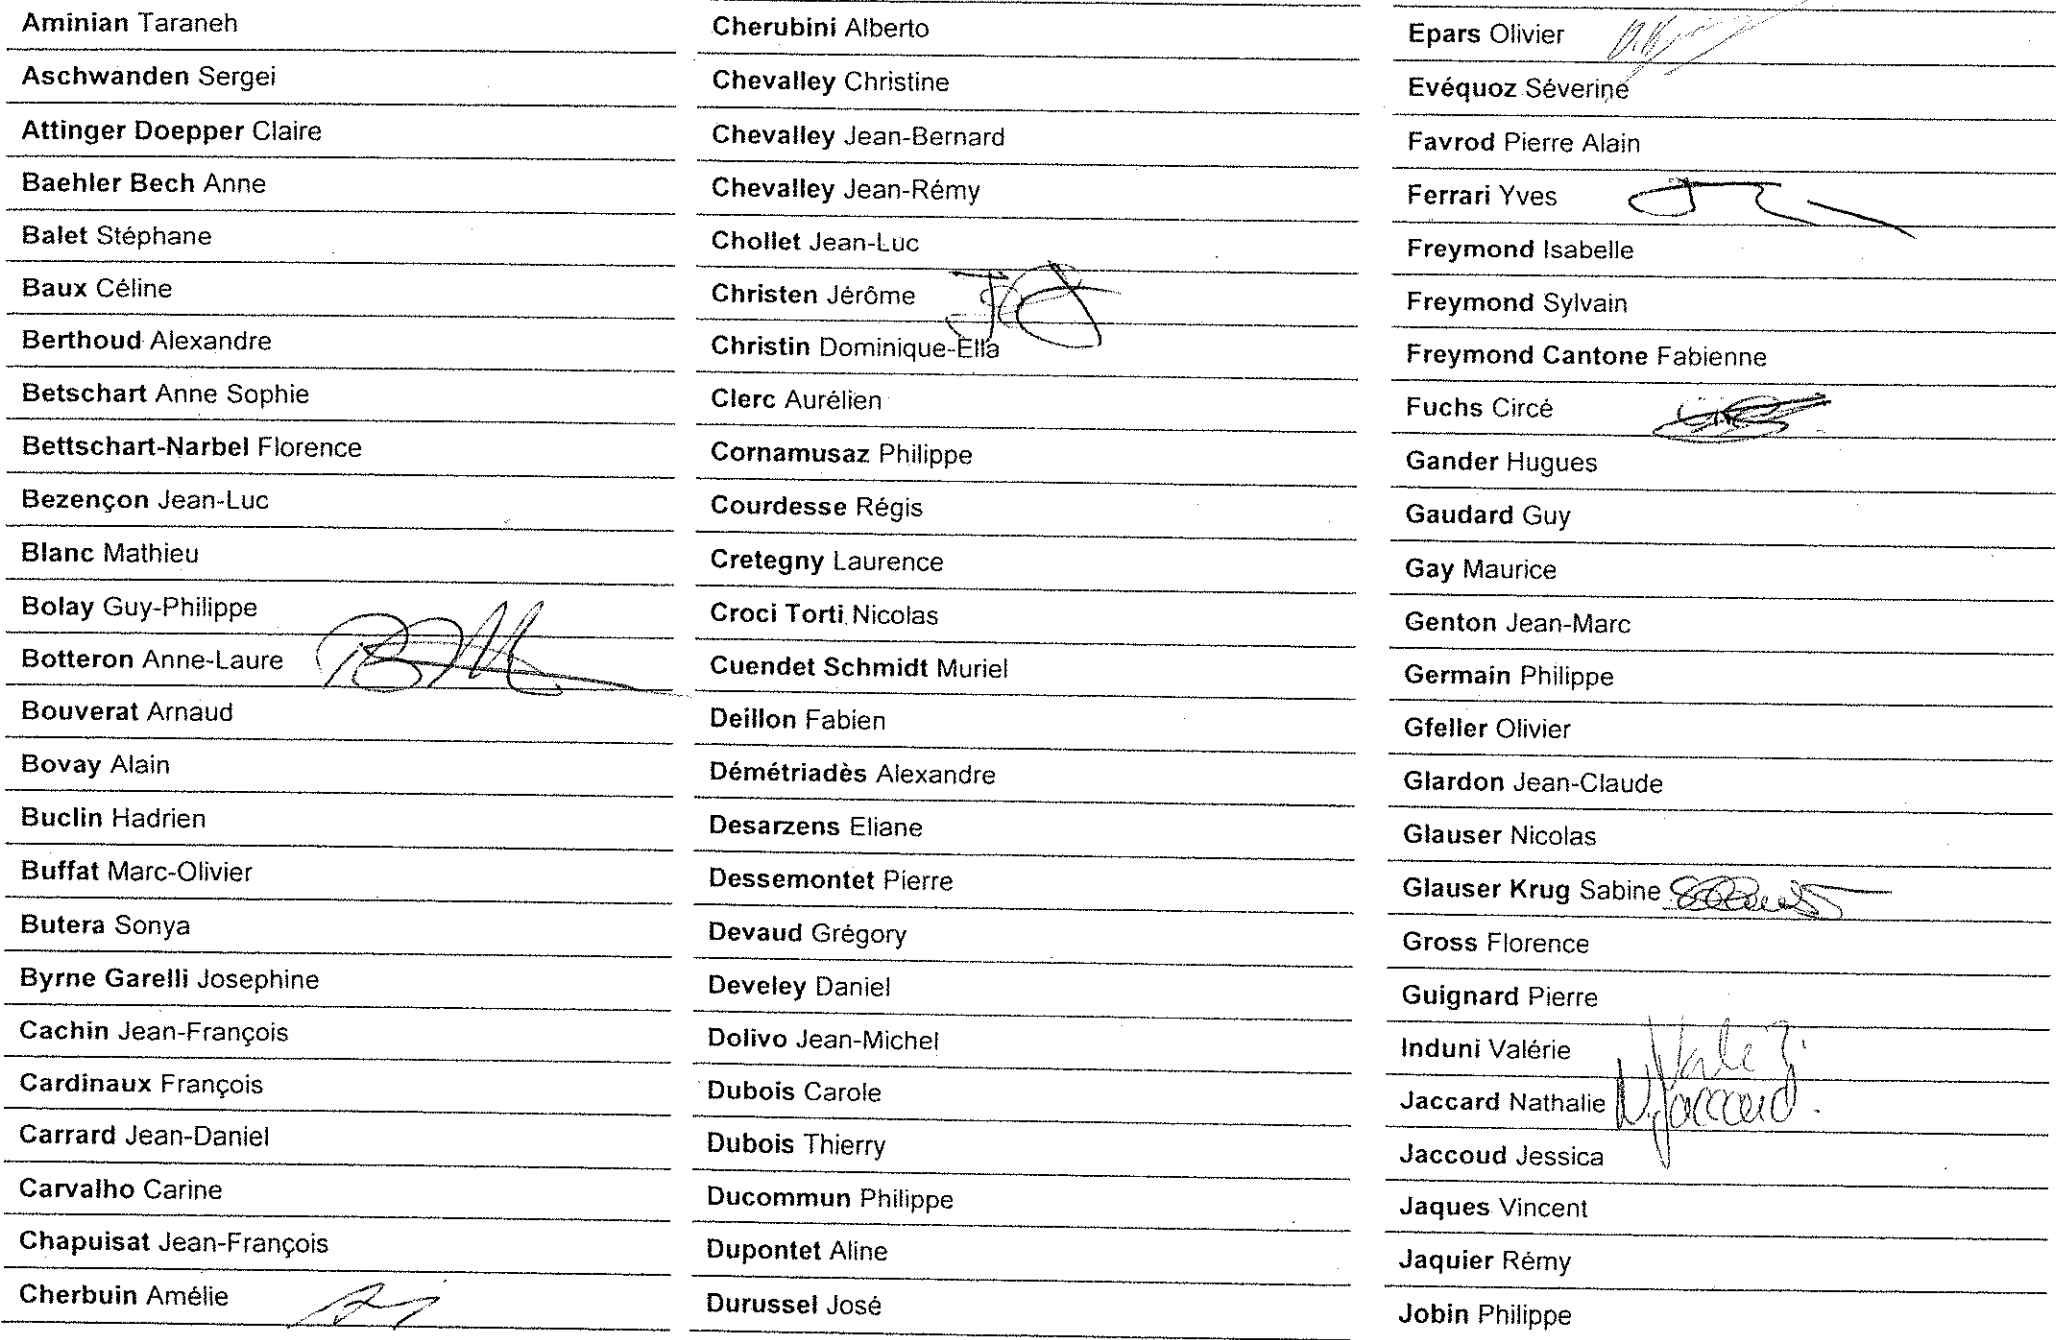 Aminian Taraneh
Aschwanden Sergei
Attinger Doepper Claire
Baehler Bech Anne
Balet Stéphane
Baux Céline
Berthoud Alexandre
Betschart Anne Sophie
Bettschart-Narbel Florence
Bezençon Jean-Luc
Blanc Mathieu
Bolay Guy-Philippe
Botteron Anne-Laure
Bouverat Arnaud
Bovay Alain
Buclin Hadrien
Buffat Marc-Olivier
Butera Sonya
Byrne Garelli Josephine
Cachin Jean-François
Cardinaux François
Carrard Jean-Daniel
Carvalho Carine
Chapuisat Jean-François
Cherbuin Amélie
Cherubini Alberto
Chevalley Christine
Chevalley Jean-Bernard
Chevalley Jean-Rémy
Chollet Jean-Luc
Christen Jérôme
Christin Dominique-Ella
Clerc Aurélien
Cornamusaz Philippe
Courdesse Régis
Cretegny Laurence
Croci Torti Nicolas
Cuendet Schmidt Muriel
Deillon Fabien
Démétriadès Alexandre
Desarzens Eliane
Dessemontet Pierre
Devaud Grégory
Develey Daniel
Dolivo Jean-Michel
Dubois Carole
Dubois Thierry
Ducommun Philippe
Dupontet Aline
Durussel José
Epars Olivier
Evéquoz Séverine
Favrod Pierre Alain
Ferrari Yves
Freymond Isabelle
Freymond Sylvain
Freymond Cantone Fabienne
Fuchs Circé
Gander Hugues
Gaudard Guy
Gay Maurice
Genton Jean-Marc
Germain Philippe
Gfeller Olivier
Glardon Jean-Claude
Glauser Nicolas
Glauser Krug Sabine
Gross Florence
Guignard Pierre
Induni Valérie
Jaccard Nathalie N. Jaccard.
Jaccoud Jessica
Jaques Vincent
Jaquier Rémy
Jobin Philippe